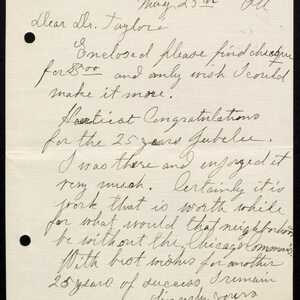 May 25th
Dear Dr. Taylor:
Enclosed please find cheque
for $5.00 and only wish I could
make it more.
Congratulations
for the 25 years Jubelee.
I was there and enjoyed it
very much. Certainly it is
work that is worth while
for what would that neighborhood
be without the Chicago Commons,
With best wishes for another
25 years of success, I remain
Sincerely yours